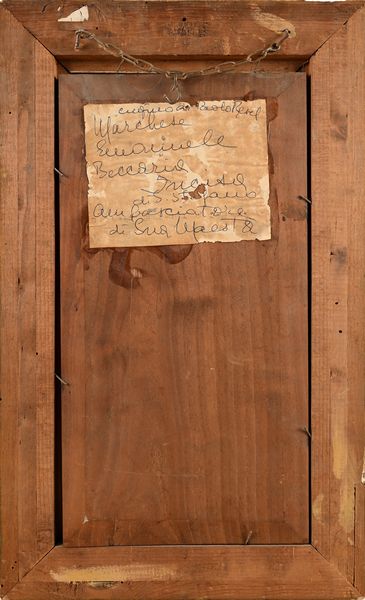 Marchese
Emanuele
Beccaria
Incisa
di S. Stefano
ambasciatore
di Sua Maestà